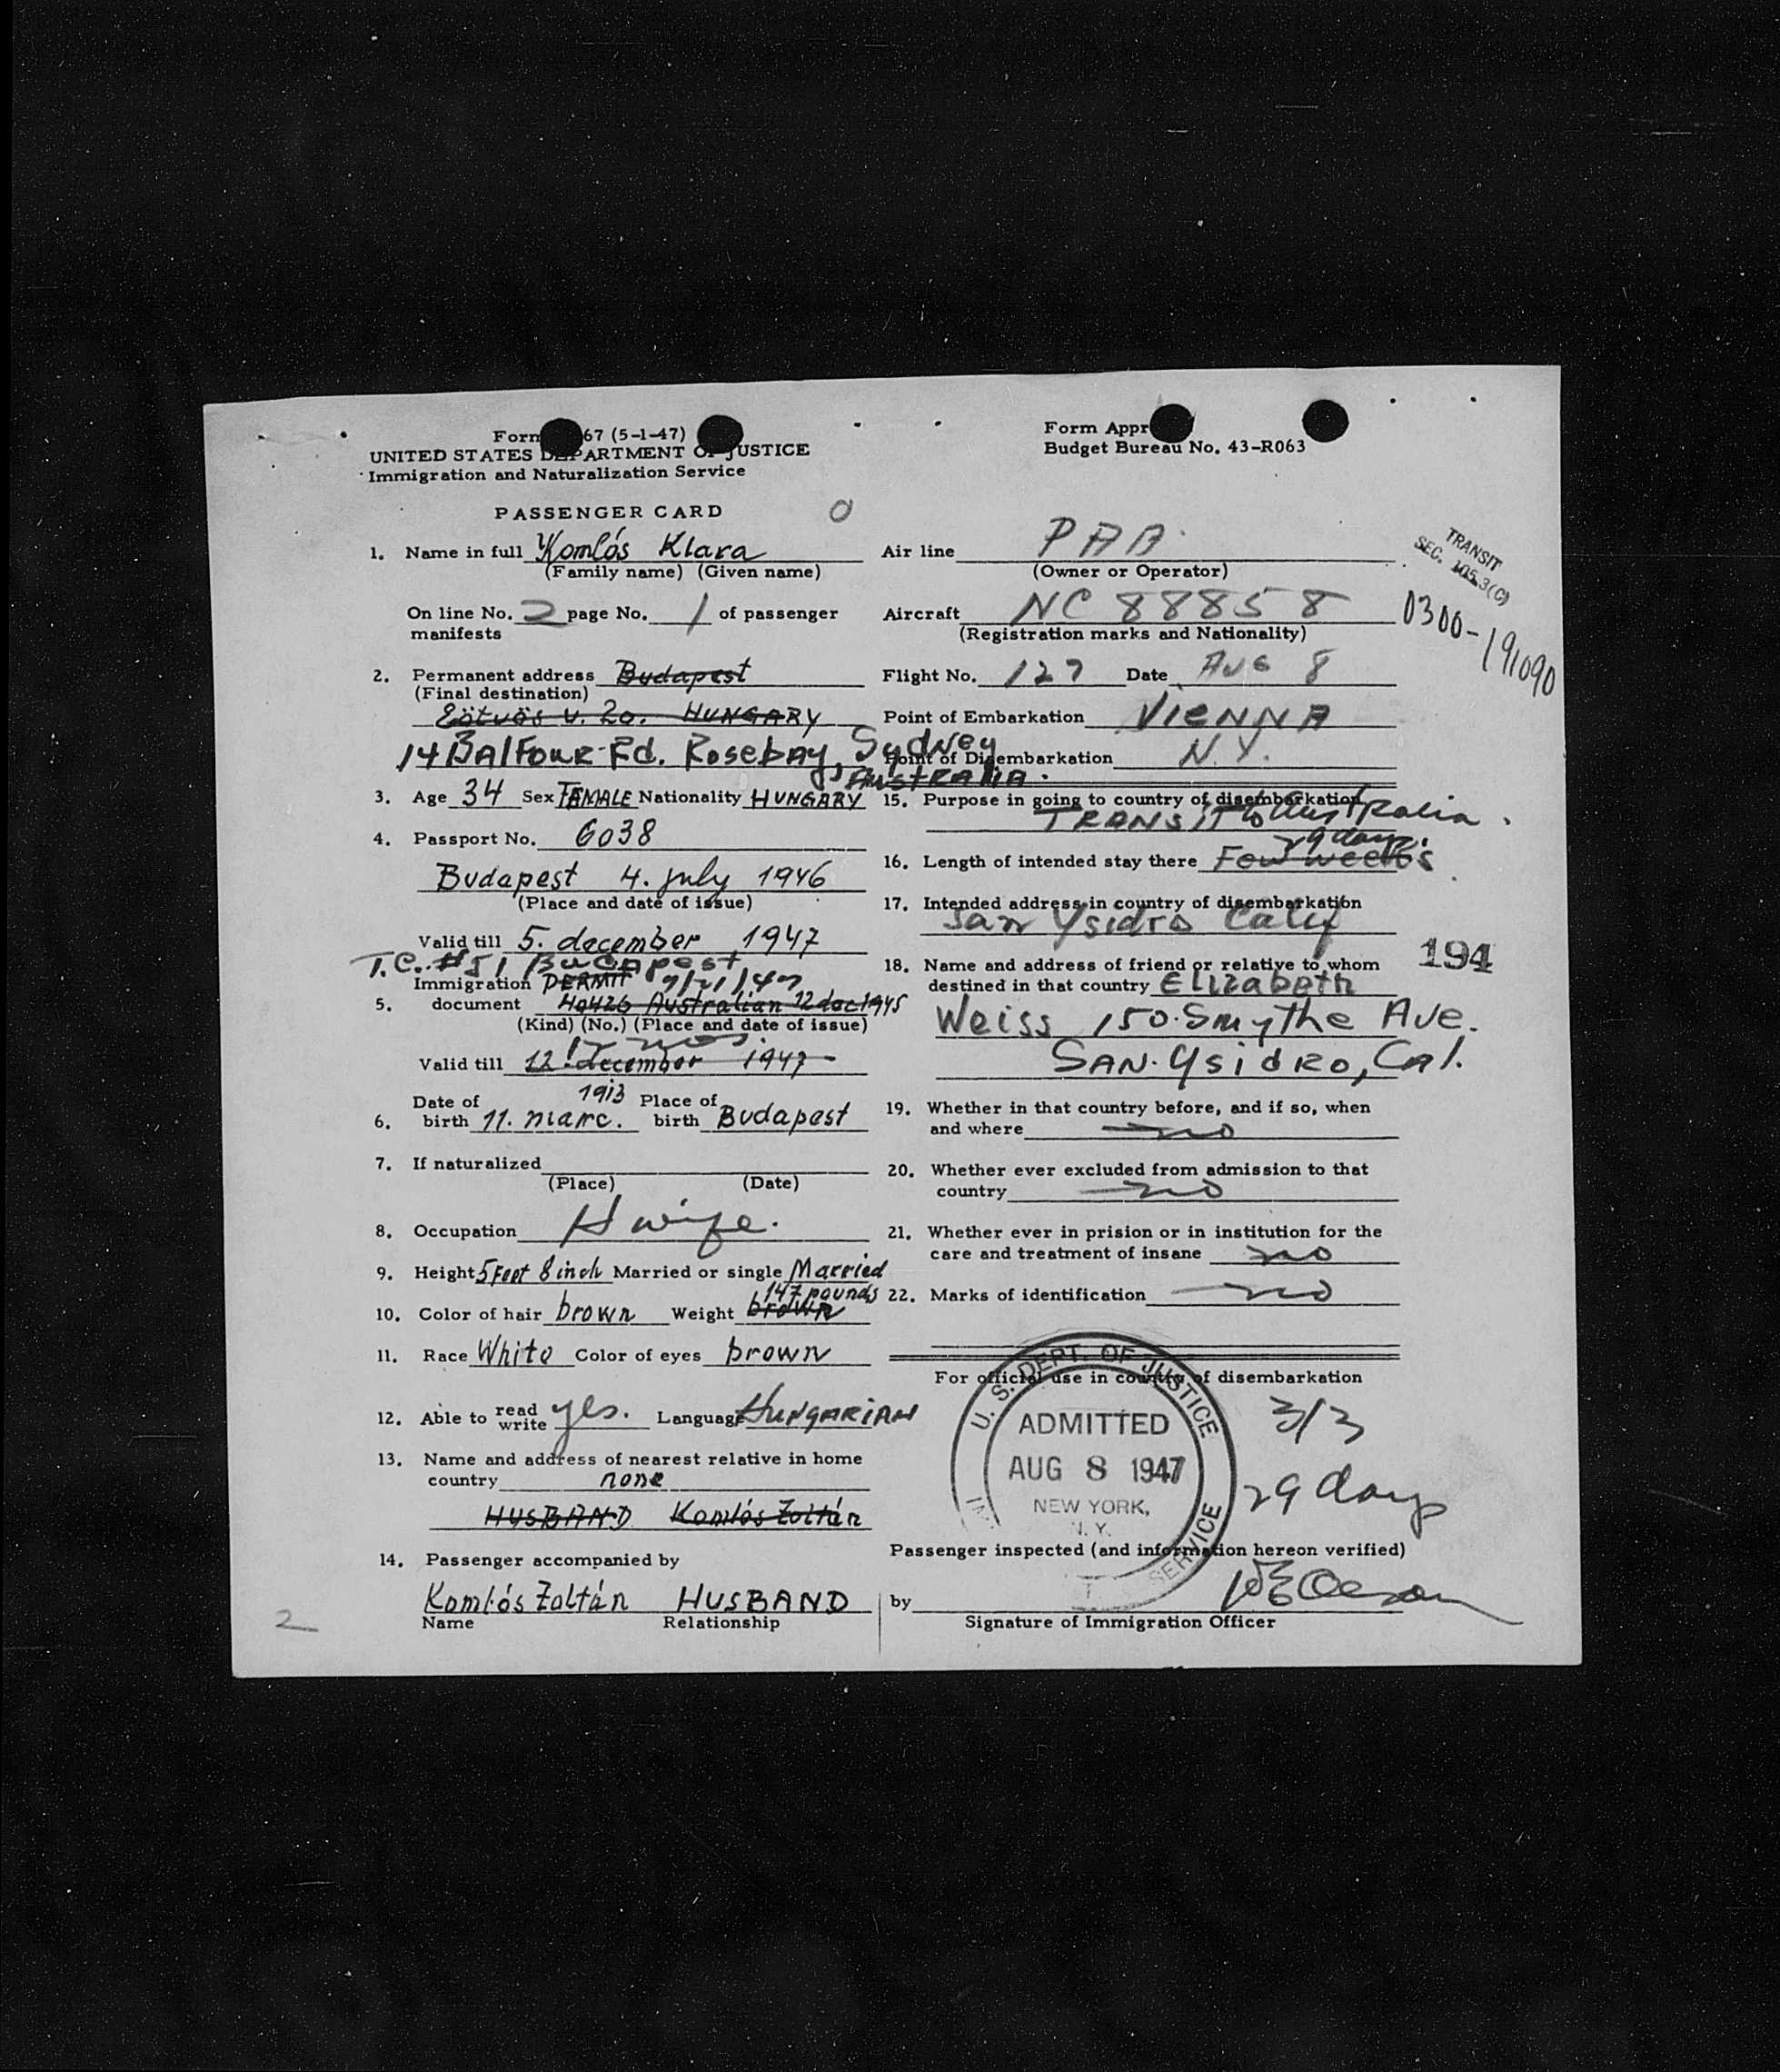 Form 67 (5-1-47)
UNITED STATES DEPARTMENT OF JUSTICE
Immigration and Naturalization Service
PASSENGER CARD 0
1. Name in full Komlós Klara
(Family name) (Given name)
On line No. 2 page No. 1 of passenger
manifests
2. Permanent address Budapest
(Final destination)
Eötvös u. 20. HUNGARY
14 BALFOUR Rd. Rosebay, Sydney
AUSTRALIA.
3. Age 34 Sex FEMALE Nationality HUNGARY
4. Passport No. 6038
Budapest 4. july 1946
(Place and date of issue)
Valid till 5. december 1947
T.C. #51 Budapest
Immigration PERMIT
5. document 40426 Australian 12 dec 1945
(Kind) (No.) (Place and date of issue)
Valid till 12. december 1947
Date of 1913 Place of
6. birth 11. marc. birth Budapest
7. If naturalized
(Place) (Date)
8. Occupation H wife.
9. Height 5 Feet 8 inch Married or single Married
147 pounds
10. Color of hair brown Weight brown
11. Race White Color of eyes brown
12. Able to read write yes. Language HUNGARIAN
13. Name and address of nearest relative in home
country none
HUSBAND Komlós Zoltán
14. Passenger accompanied by
Komlós Zoltán HUSBAND
Name Relationship
2
Form Appr
Budget Bureau No. 43-R063
Air line PAA
(Owner or Operator)
TRANSIT
SEC. 105.3(C)
0300-191090
Aircraft NC 88858
(Registration marks and Nationality)
Flight No. 127 Date AUG 8
Point of Embarkation VIENNA
Point of Disembarkation N.Y.
15. Purpose in going to country of disembarkation
TRANSIT to Australia.
29 days.
16. Length of intended stay there Few weeks
17. Intended address in country of disembarkation
San Ysidro Calif
194
18. Name and address of friend or relative to whom
destined in that country Elizabeth
Weiss 150 Smythe Ave.
SAN YSIDRO, Cal.
19. Whether in that country before, and if so, when
and where no
20. Whether ever excluded from admission to that
country no
21. Whether ever in prision or in institution for the
care and treatment of insane no
22. Marks of identification no
For official use in country of disembarkation
U. S. DEPT. OF JUSTICE
ADMITTED
AUG 8 1947
NEW YORK,
N. Y.
SERVICE
3/3
29 days
Passenger inspected (and information hereon verified)
by
Signature of Immigration Officer